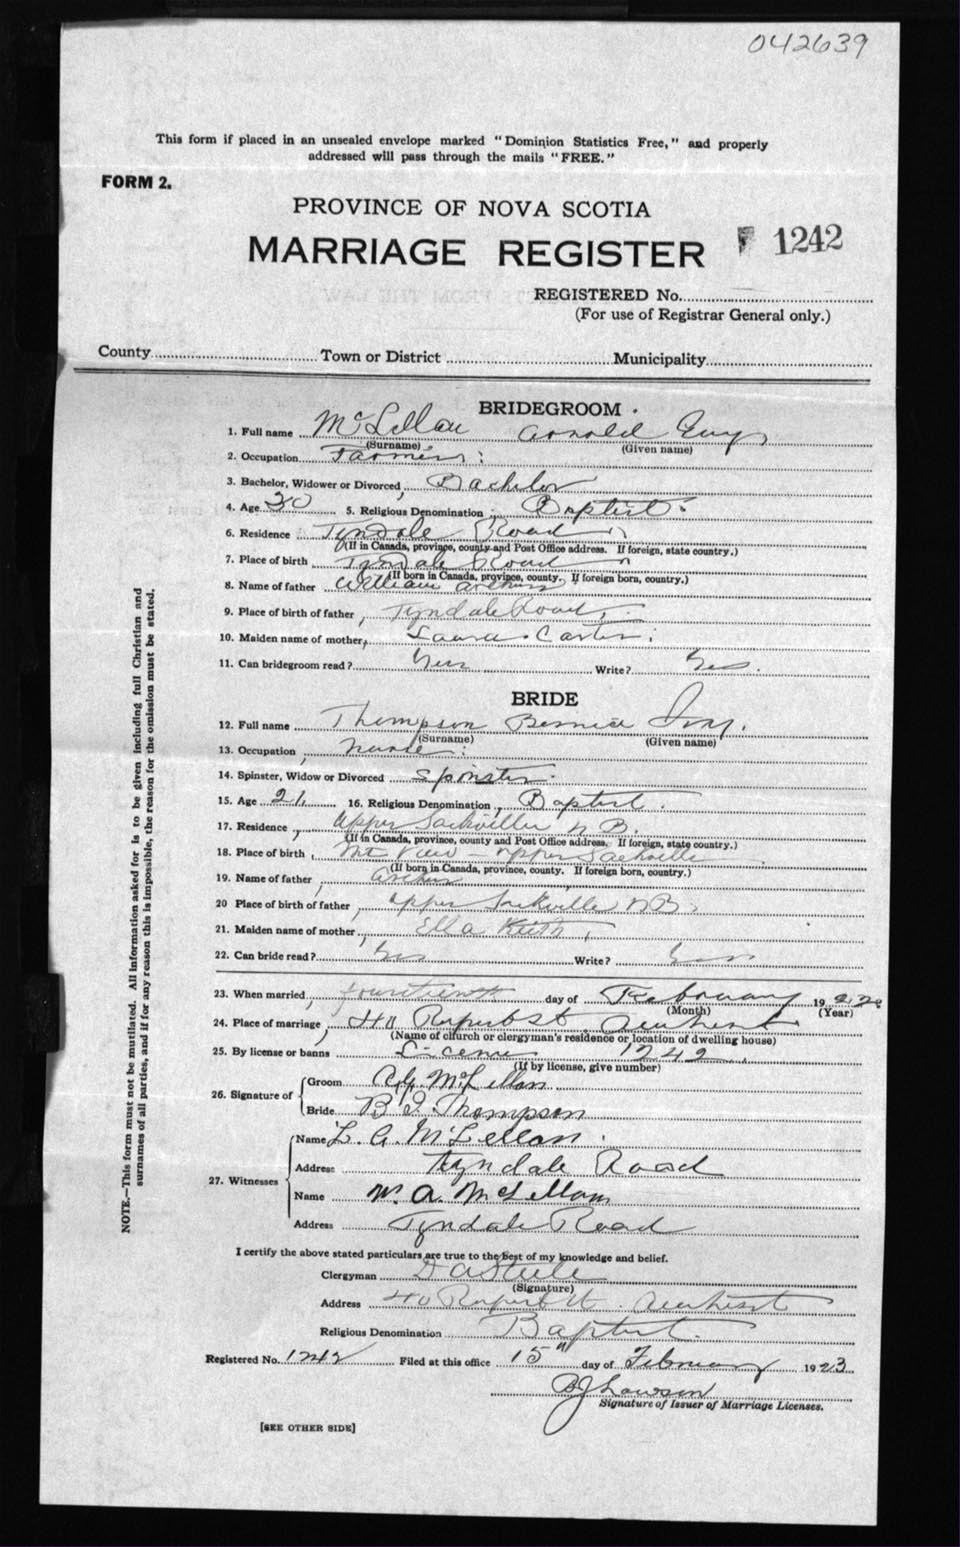 042639
This form if placed in an unsealed envelope marked "Dominion Statistics Free," and properly
addressed will pass through the mails "FREE."
FORM 2.
PROVINCE OF NOVA SCOTIA
MARRIAGE REGISTER 1242
REGISTERED No.
(For use of Registrar General only.)
County Town or District Municipality
BRIDEGROOM
1. Full name McLellan Arnold Guy
(Surname) (Given name)
2. Occupation Farmer
3. Bachelor, Widower or Divorced, Bachelor
4. Age 30 5. Religious Denomination Baptist
6. Residence Tyndale Road
(If in Canada, province, county and Post Office address. If foreign, state country.)
7. Place of birth Tyndale Road
(If born in Canada, province, county. If foreign born, country.)
8. Name of father William Arthur
9. Place of birth of father, Tyndale Road
10. Maiden name of mother, Laura Carter
11. Can bridegroom read? Yes Write? Yes.
BRIDE
12. Full name Thompson Bernice Ivy.
(Surname) (Given name)
13. Occupation, Nurse
14. Spinster, Widow or Divorced Spinster.
15. Age 21 16. Religious Denomination, Baptist.
17. Residence, Upper Sackville N B.
(If in Canada, province, county and Post Office address. If foreign, state country.)
18. Place of birth, Mt View - Upper Sackville
(If born in Canada, province, county. If foreign born, country.)
19. Name of father,
20 Place of birth of father, Upper Sackville N B.
21. Maiden name of mother, Ella Keith,
22. Can bride read? Yes Write? Yes
23. When married, fourteenth day of February 19
(Month) (Year)
24. Place of marriage, 40 Rupert St Amherst
(Name of church or clergyman's residence or location of dwelling house)
25. By license or banns License 1242
(If by license, give number)
26. Signature of Groom A G McLellan
Bride B I Thompson
27. Witnesses Name L. A. McLellan.
Address Tyndale Road
Name W. A. McLellan
Address Tyndale Road
I certify the above stated particulars are true to the best of my knowledge and belief.
Clergyman D A Steele
(Signature)
Address 40 Rupert St. Amherst
Religious Denomination Baptist.
Registered No. 1242 Filed at this office 15th day of February 1923
B J Lawson
Signature of Issuer of Marriage Licenses.
[SEE OTHER SIDE]
NOTE.—This form must not be mutilated. All information asked for is to be given including full Christian and
surnames of all parties, and if for any reason this is impossible, the reason for the omission must be stated.